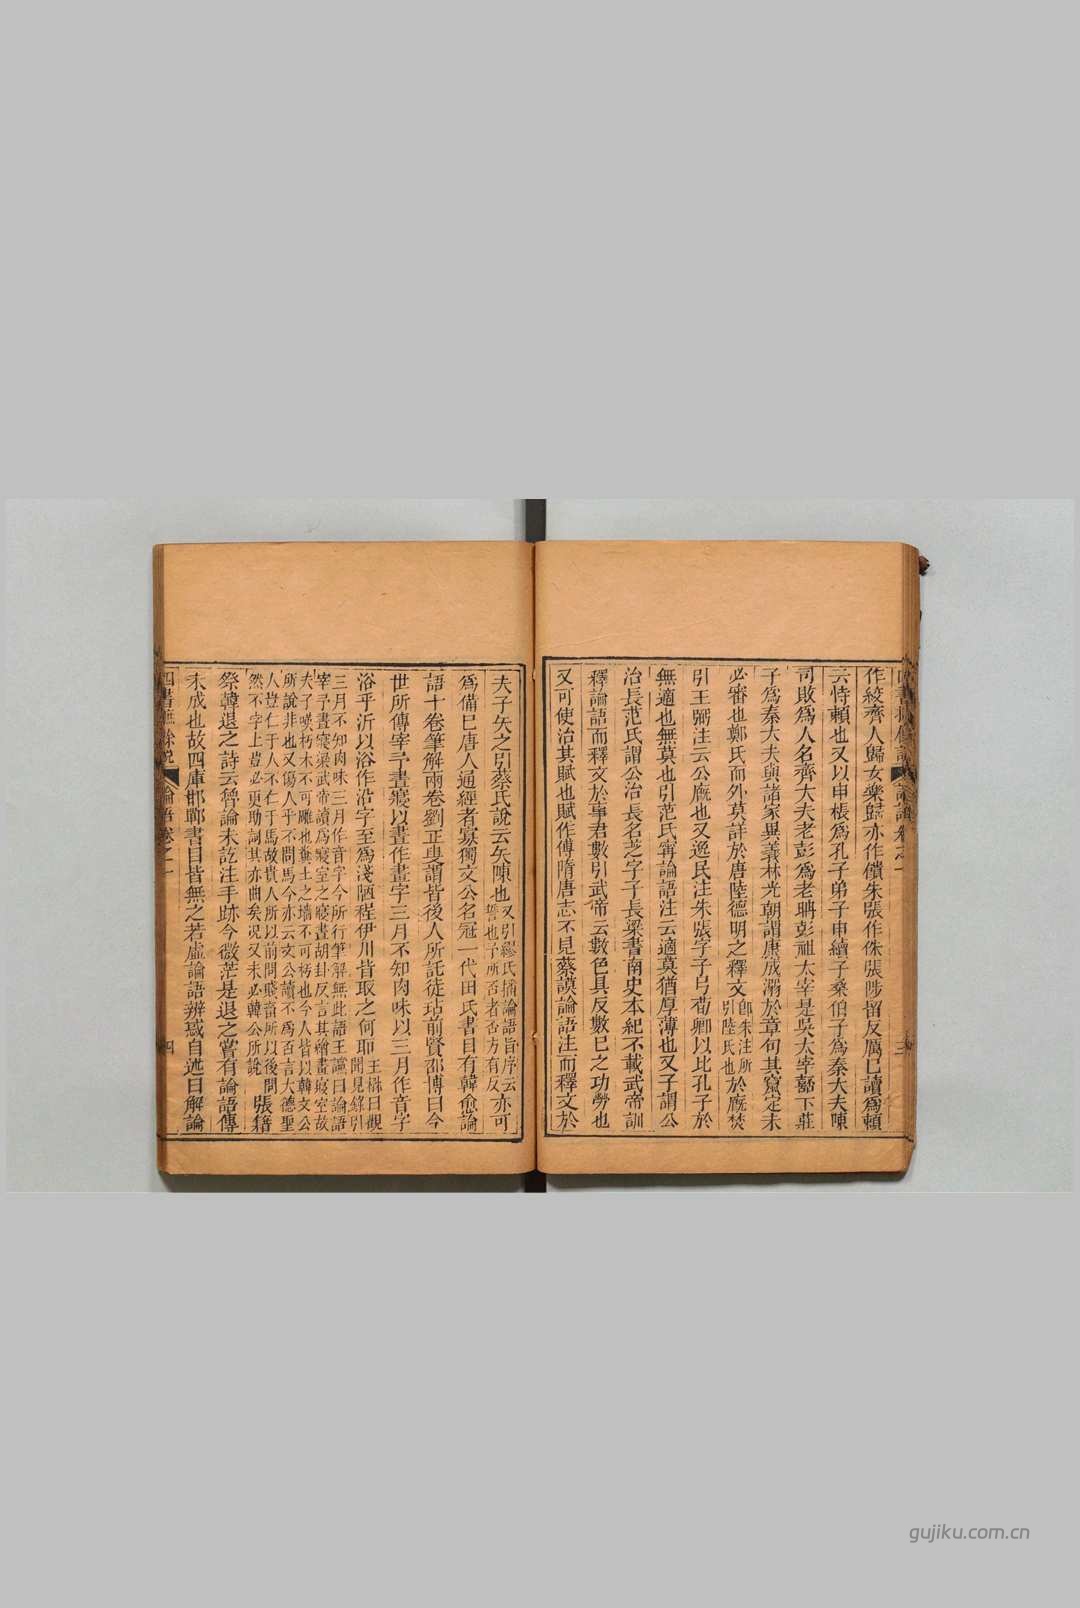 作絞齊人歸女樂歸亦作饋朱張作侏張陟留反厲已讀爲賴
云恃賴也又以申棖爲孔子弟子申續子桑伯子爲秦大夫陳
司敗爲人名齊大夫老彭爲老聃彭祖太宰是吳太宰嚭卞莊
子爲秦大夫與諸家異義林光朝謂康成溺於章句其竄定未
必審也鄭氏而外莫詳於唐陸德明之釋文卽朱注所引陸氏也於廐焚
引王弼注云公廐也又逸民注朱張字子弓荀卿以比孔子於
無適也無莫也引范氏甯論語注云適莫猶厚薄也又子謂公
治長范氏謂公治長名芝字子長梁書南史本紀不載武帝訓
釋論語而釋文於事君數引武帝云數色具反數已之功勞也
又可使治其賦也賦作傅隋唐志不見蔡謨論語注而釋文於
夫子矢之引蔡氏說云矢陳也又引繆氏播論語旨序云亦可誓也予所否者否方有反
爲備已唐人通經者寡獨文公名冠一代田氏書目有韓愈論
語十卷筆解兩卷劉正叟謂皆後人所託徒玷前賢邵博曰今
世所傳宰予晝寢以晝作畫字三月不知肉味以三月作音字
浴乎沂以浴作沿字至爲淺陋程伊川皆取之何耶王楙曰觀聞見錄引
三月不知肉味三月作音字今所行筆解無此語王讜曰論語
宰予晝寢梁武帝讀爲寢室之寢晝胡卦反言其繪畫寢室故
夫子嘆朽木不可雕也糞土之墻不可杇也今人皆以韓文公
所說非也又傷人乎不問馬今亦云文公讀不爲否言大德聖
人豈仁于人不仁于馬故貴人所以前問賤畜所以後問
然不字上豈必更助詞其亦曲矣况又未必韓公所說張籍
祭韓退之詩云魯論未訖注手跡今微茫是退之嘗有論語傳
未成也故四庫邯鄲書目皆無之若虛論語辨惑自述曰解論
四書摭餘說
論語卷之一
四
三
gujiku.com.cn